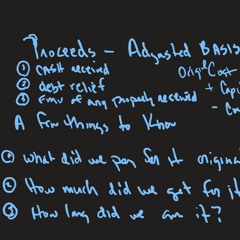 Proceeds - Adjusted BASIS
① CASH received Original Cost
② debt relief + Capi
③ FMV of any property received - Co
A few things to know
① what did we pay for it origina
② How much did we get for it
③ How long did we own it?